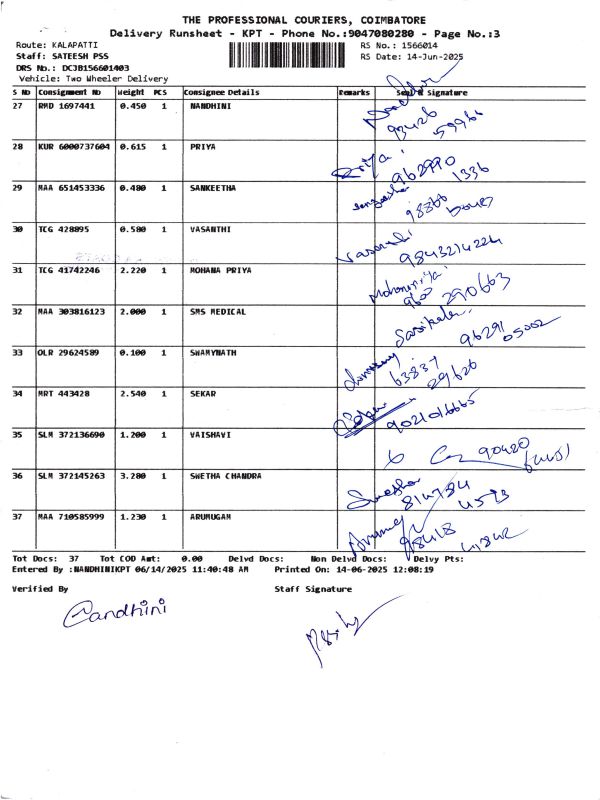 THE PROFESSIONAL COURIERS, COIMBATORE
Delivery Runsheet - KPT - Phone No.:9047080280 - Page No.:3
Route: KALAPATTI RS No.: 1566014
Staff: SATEESH PSS RS Date: 14-Jun-2025
DRS No.: DCJB156601403
Vehicle: Two Wheeler Delivery
S No Consignment No Weight PCS Consignee Details Remarks Seal & Signature
27 RMD 1697441 0.450 1 NANDHINI
93426 59966
28 KUR 6000737604 0.615 1 PRIYA
Priya
962990 1336
29 MAA 651453336 0.480 1 SANKEETHA
98866
30 TCG 428895 0.580 1 VASANTHI
Vasanthi
9843214224
31 TCG 41742246 2.220 1 MOHANA PRIYA
Mohanapriya
9600 290663
32 MAA 303816123 2.000 1 SMS MEDICAL
Sasikala
96291 05002
33 OLR 29624589 0.100 1 SWAMYNATH
63837 29626
34 MRT 443428 2.540 1 SEKAR
9021016665
35 SLM 372136690 1.200 1 VAISHAVI
90420
36 SLM 372145263 3.280 1 SWETHA CHANDRA
Swetha
814784 4573
37 MAA 710585999 1.230 1 ARUMUGAM
Arumug
98418 41842
Tot Docs: 37 Tot COD Amt: 0.00 Delvd Docs: Non Delvd Docs: Delvy Pts:
Entered By :NANDHINIKPT 06/14/2025 11:40:48 AM Printed On: 14-06-2025 12:08:19
Verified By Staff Signature
Nandhini